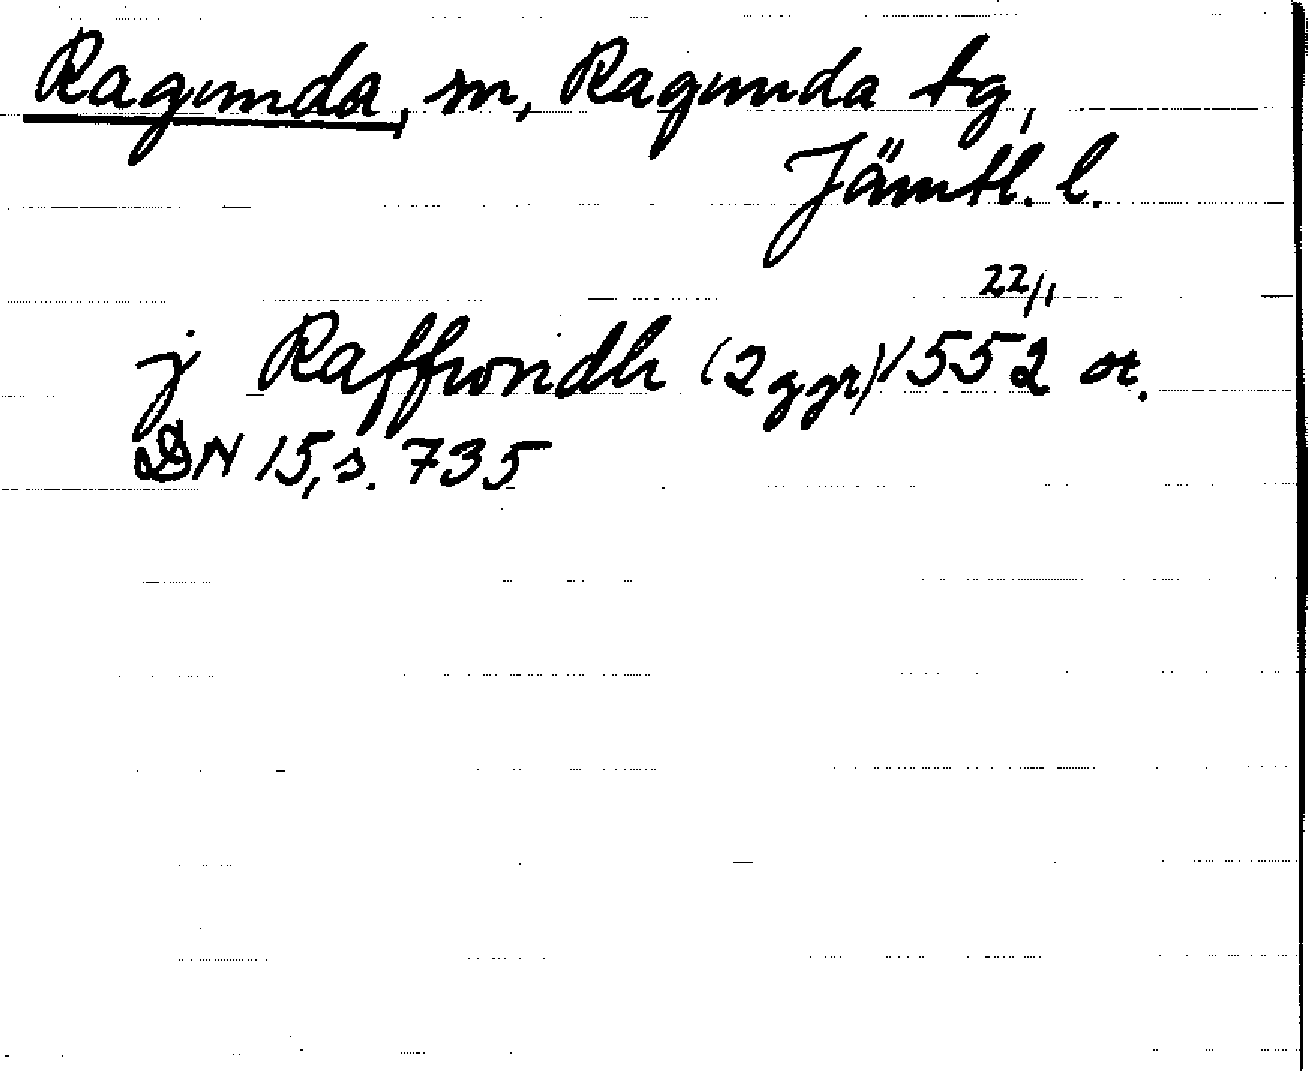 Ragunda, sn, Ragunda tg,
Jämtl. l.
j Raffwndh (2 ggr) 22/1 1552 or.
DN 15, s. 735